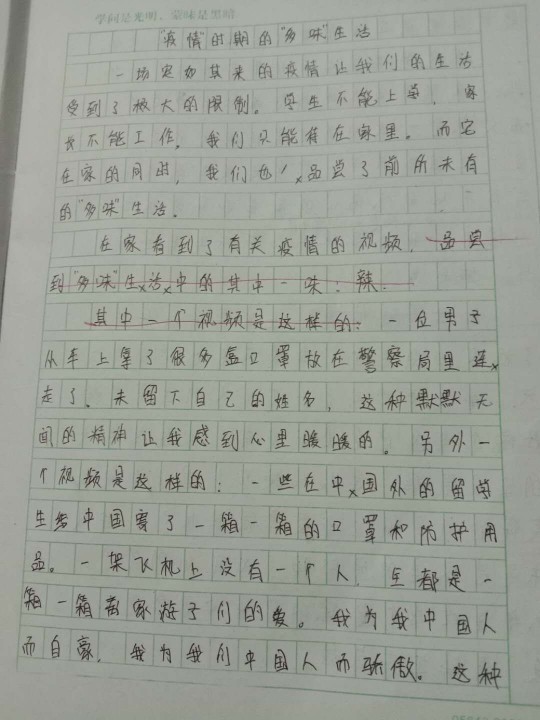 学问是光明，蒙昧是黑暗
"疫情"时期的"多味"生活
一场突如其来的疫情让我们的生活
受到了极大的限制。学生不能上学，家
长不能工作。我们只能待在家里。而宅
在家的同时，我们也品尝了前所未有
的"多味"生活。
在家看到了有关疫情的视频，品尝
到"多味"生活中的其中一味：辣.
其中一个视频是这样的：一位男子
从车上拿了很多盒口罩放在警察局里
走了。未留下自己的姓名，这种默默无
闻的精神让我感到心里暖暖的。另外一
个视频是这样的：一些在中国外的留学
生给中国寄了一箱一箱的口罩和防护用
品。一架飞机上没有一个人，全都是一
箱一箱离家游子们的爱。我为我中国人
而自豪，我为我们中国人而骄傲。这种